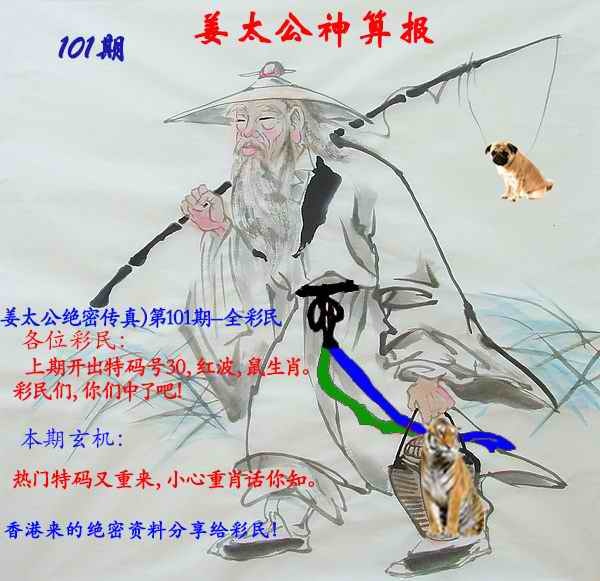 姜太公神算报
101期
姜太公绝密传真)第101期--全彩民
各位彩民:
上期开出特码号30,红波,鼠生肖。
彩民们,你们中了吧!
本期玄机:
热门特码又重来,小心重肖话你知。
香港来的绝密资料分享给彩民!